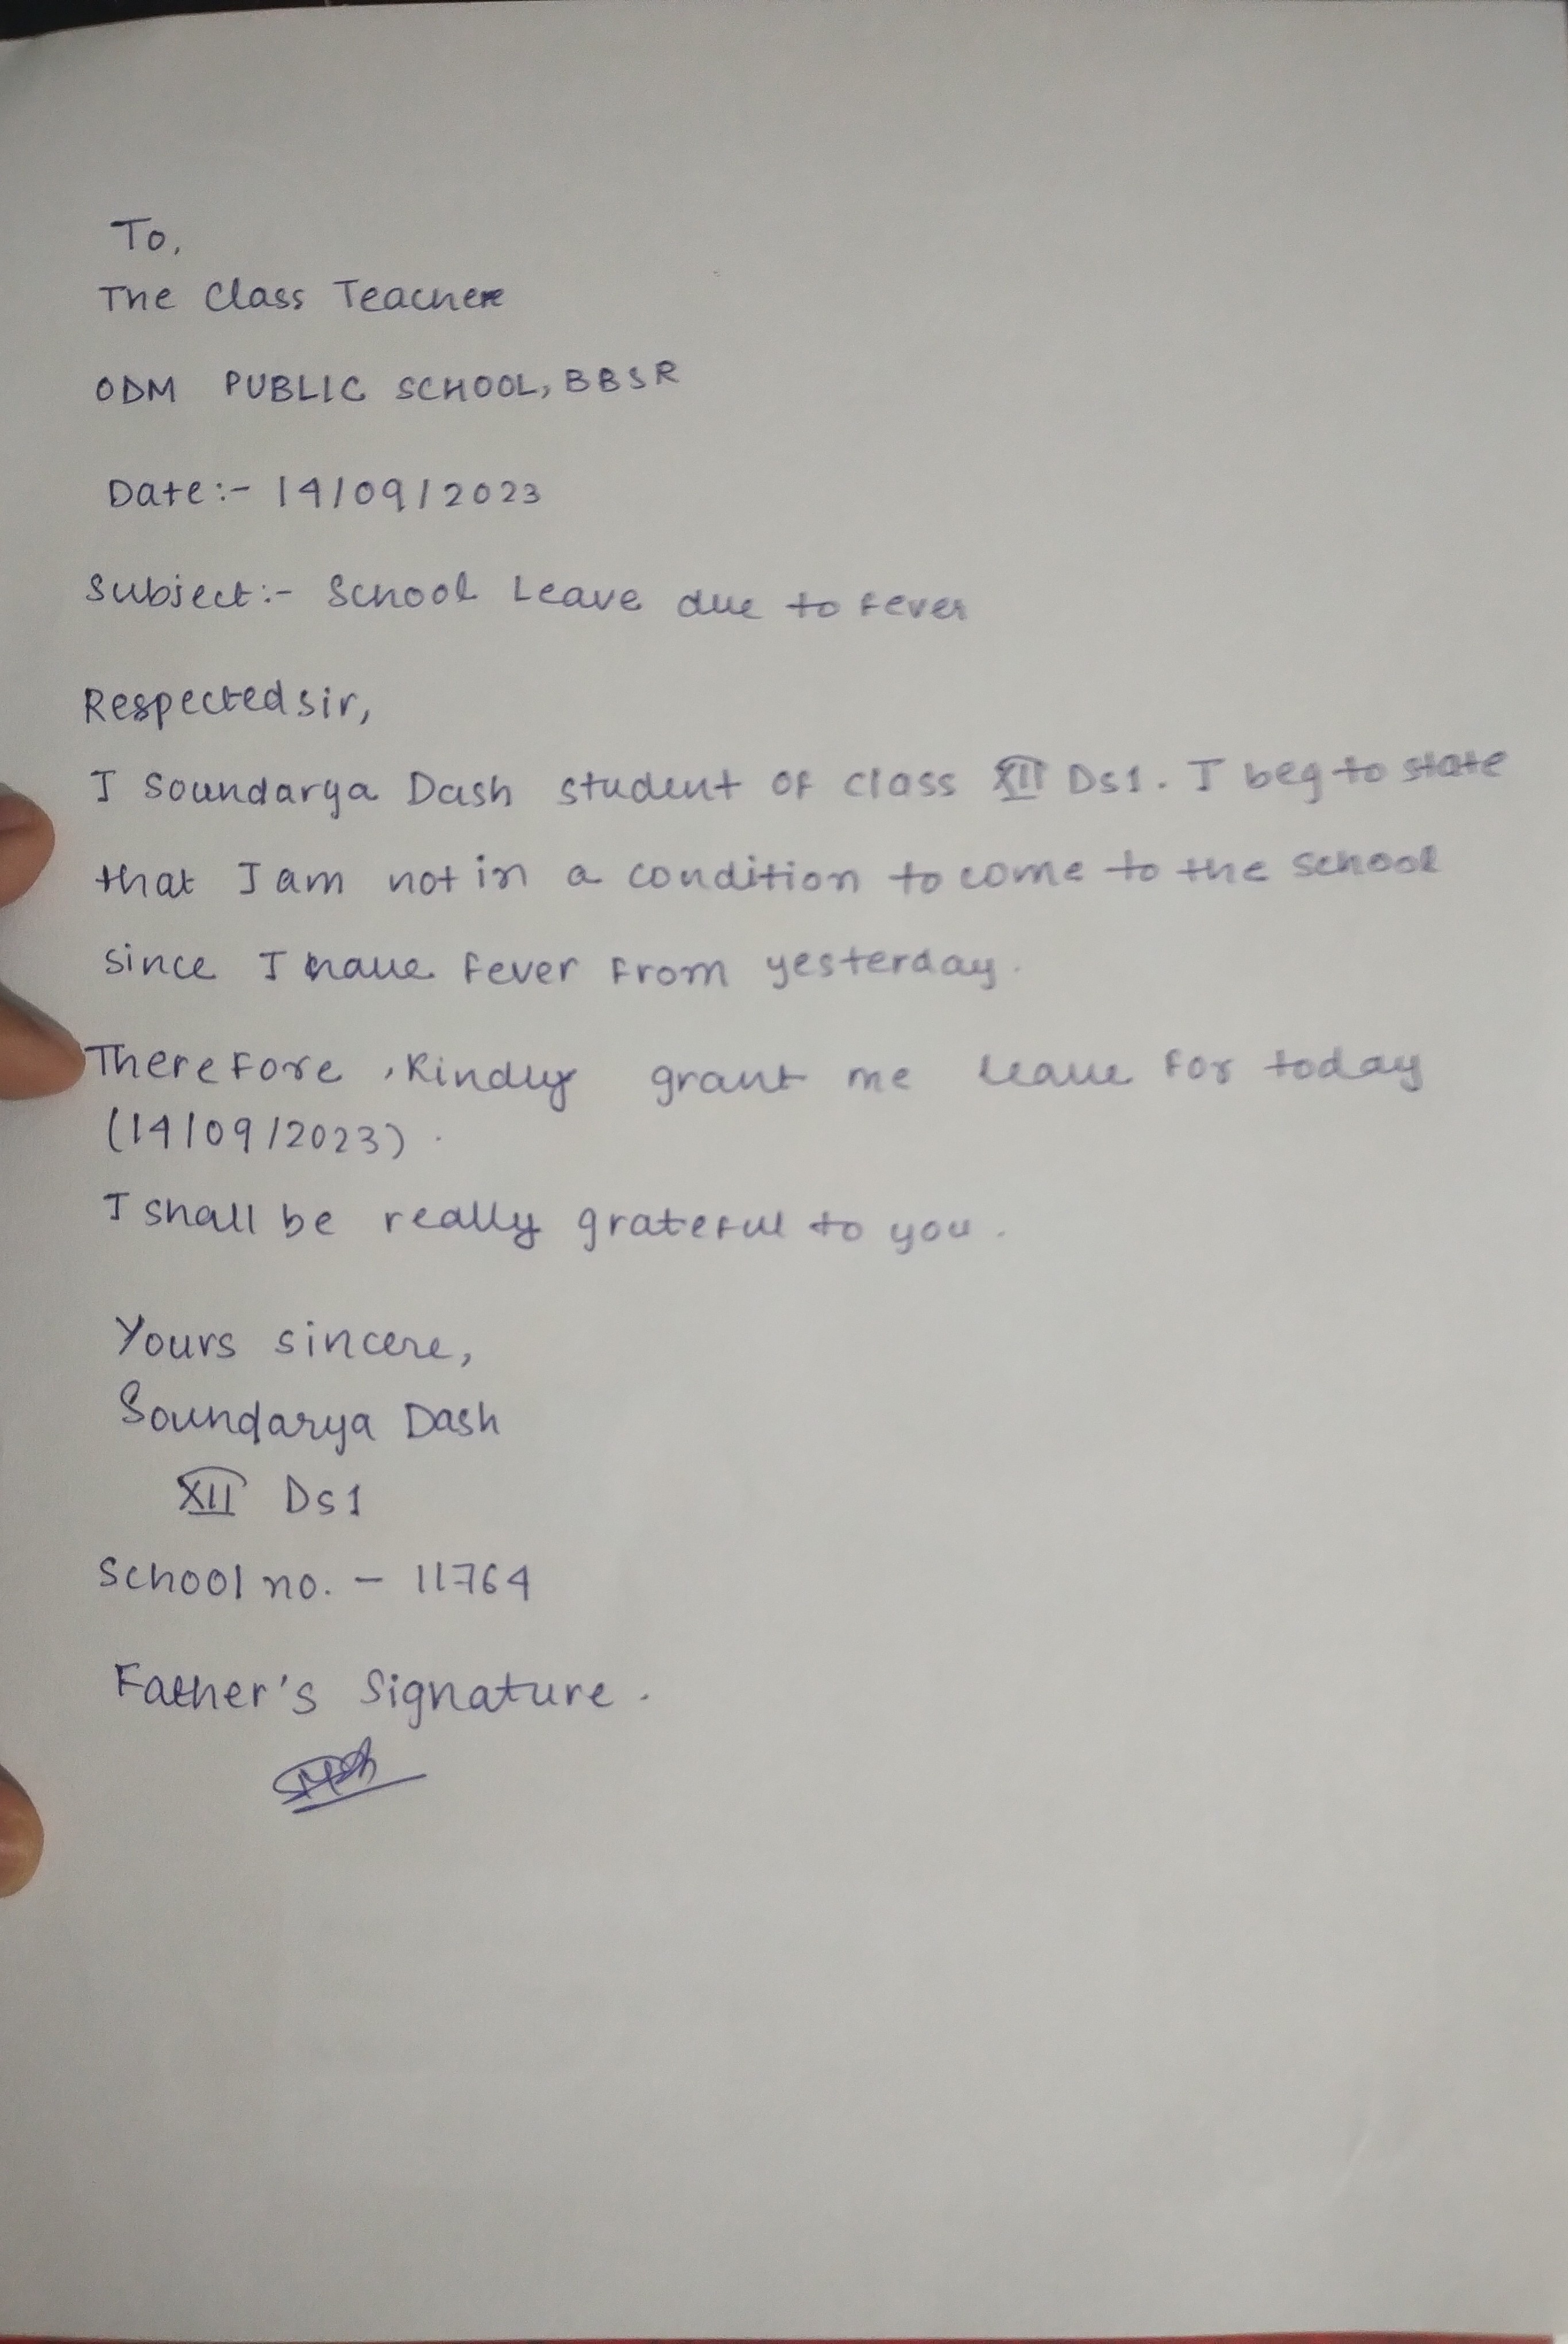 To,
The Class Teacher
ODM PUBLIC SCHOOL, BBSR
Date:- 14/09/2023
Subject:- School Leave due to fever
Respected sir,
I Soundarya Dash student of class XII Ds1. I beg to state
that I am not in a condition to come to the school
since I have fever from yesterday.
Therefore, Kindly grant me leave for today
(14/09/2023).
I shall be really grateful to you.
Yours sincere,
Soundarya Dash
XII Ds1
School no. - 11764
Father's Signature.